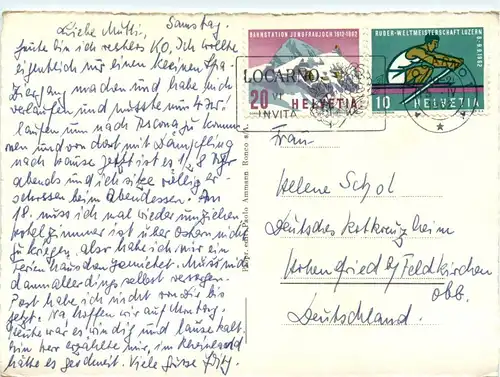 Samstag
Liebe Mutti,
heute bin ich restlos KO, Ich wollte
eigentlich nur einen kleinen Spa-
ziergang machen und habe mich
verlaufen und musste nun
laufen um nach Ascona zu komm-
men und von dort mit Dampfling
nach Hause. Jetzt ist es 1/2 8 Uhr
abends und ich sitze völlig er-
schossen beim Abendessen. Am
18. muss ich mal wieder umziehen
Hotelzimmer ist über Ostern nicht
zu kriegen, also habe ich mir ein
Ferienhäuschen gemietet. Muss mich
dann allerdings selbst versorgen.
Post habe ich nicht von Dir bis
jetzt. Na hoffen wir auf Montag.
Heute war es windig und lausekalt.
Ein Herr erzählte mir, im Rheinland
hätte es geschneit. Viele Grüsse
BAHNSTATION JUNGFRAUJOCH 1912-1962
20 HELVETIA
RUDER-WELTMEISTERSCHAFT LUZERN
6.-9.9.1962
10 HELVETIA
LOCARNO
INVITA
Paolo Ammann Ronco s/A.
Frau
Helene Schol
Deutsches Rotkreuzheim
Hohenfried b/Feldkirchen
Obb.
Deutschland.